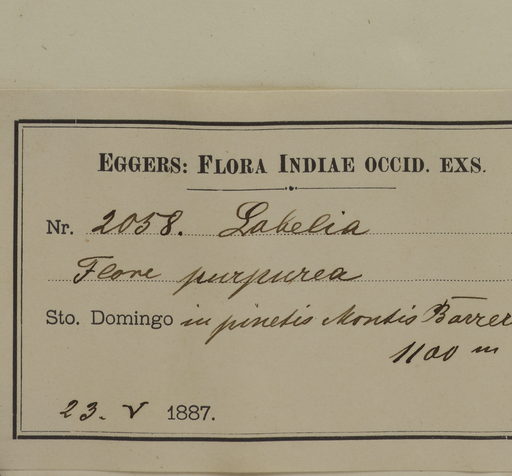 EGGERS: FLORA INDIAE OCCID. EXS.
Nr. 2058. Lobelia
Flore purpurea
Sto. Domingo in pinetis Montis Barrer
1100 m
23. V 1887.